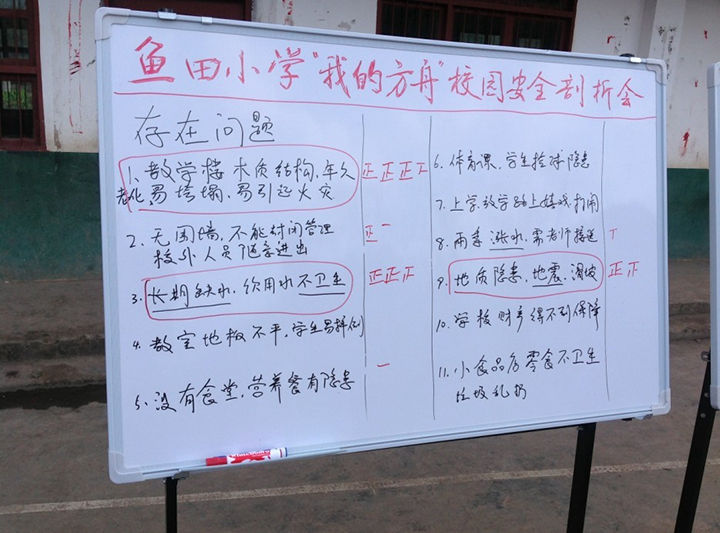 鱼田小学"我的方舟"校园安全剖析会
存在问题
1. 教学楼木质结构,年久
老化,易垮塌,易引起火灾
正正正
2. 无围墙,不能封闭管理
校外人员随意进出
正一
3. 长期缺水,饮用水不卫生
正正
4. 教室地板不平,学生易摔倒
5. 没有食堂,营养餐有隐患
一
6. 体育课,学生捡球隐患
7. 上学放学路上嬉戏打闹
8. 雨季涨水,需老师接送
9. 地质隐患,地震,滑坡
正
10. 学校财产得不到保障
11. 小食品店零食不卫生
垃圾乱扔